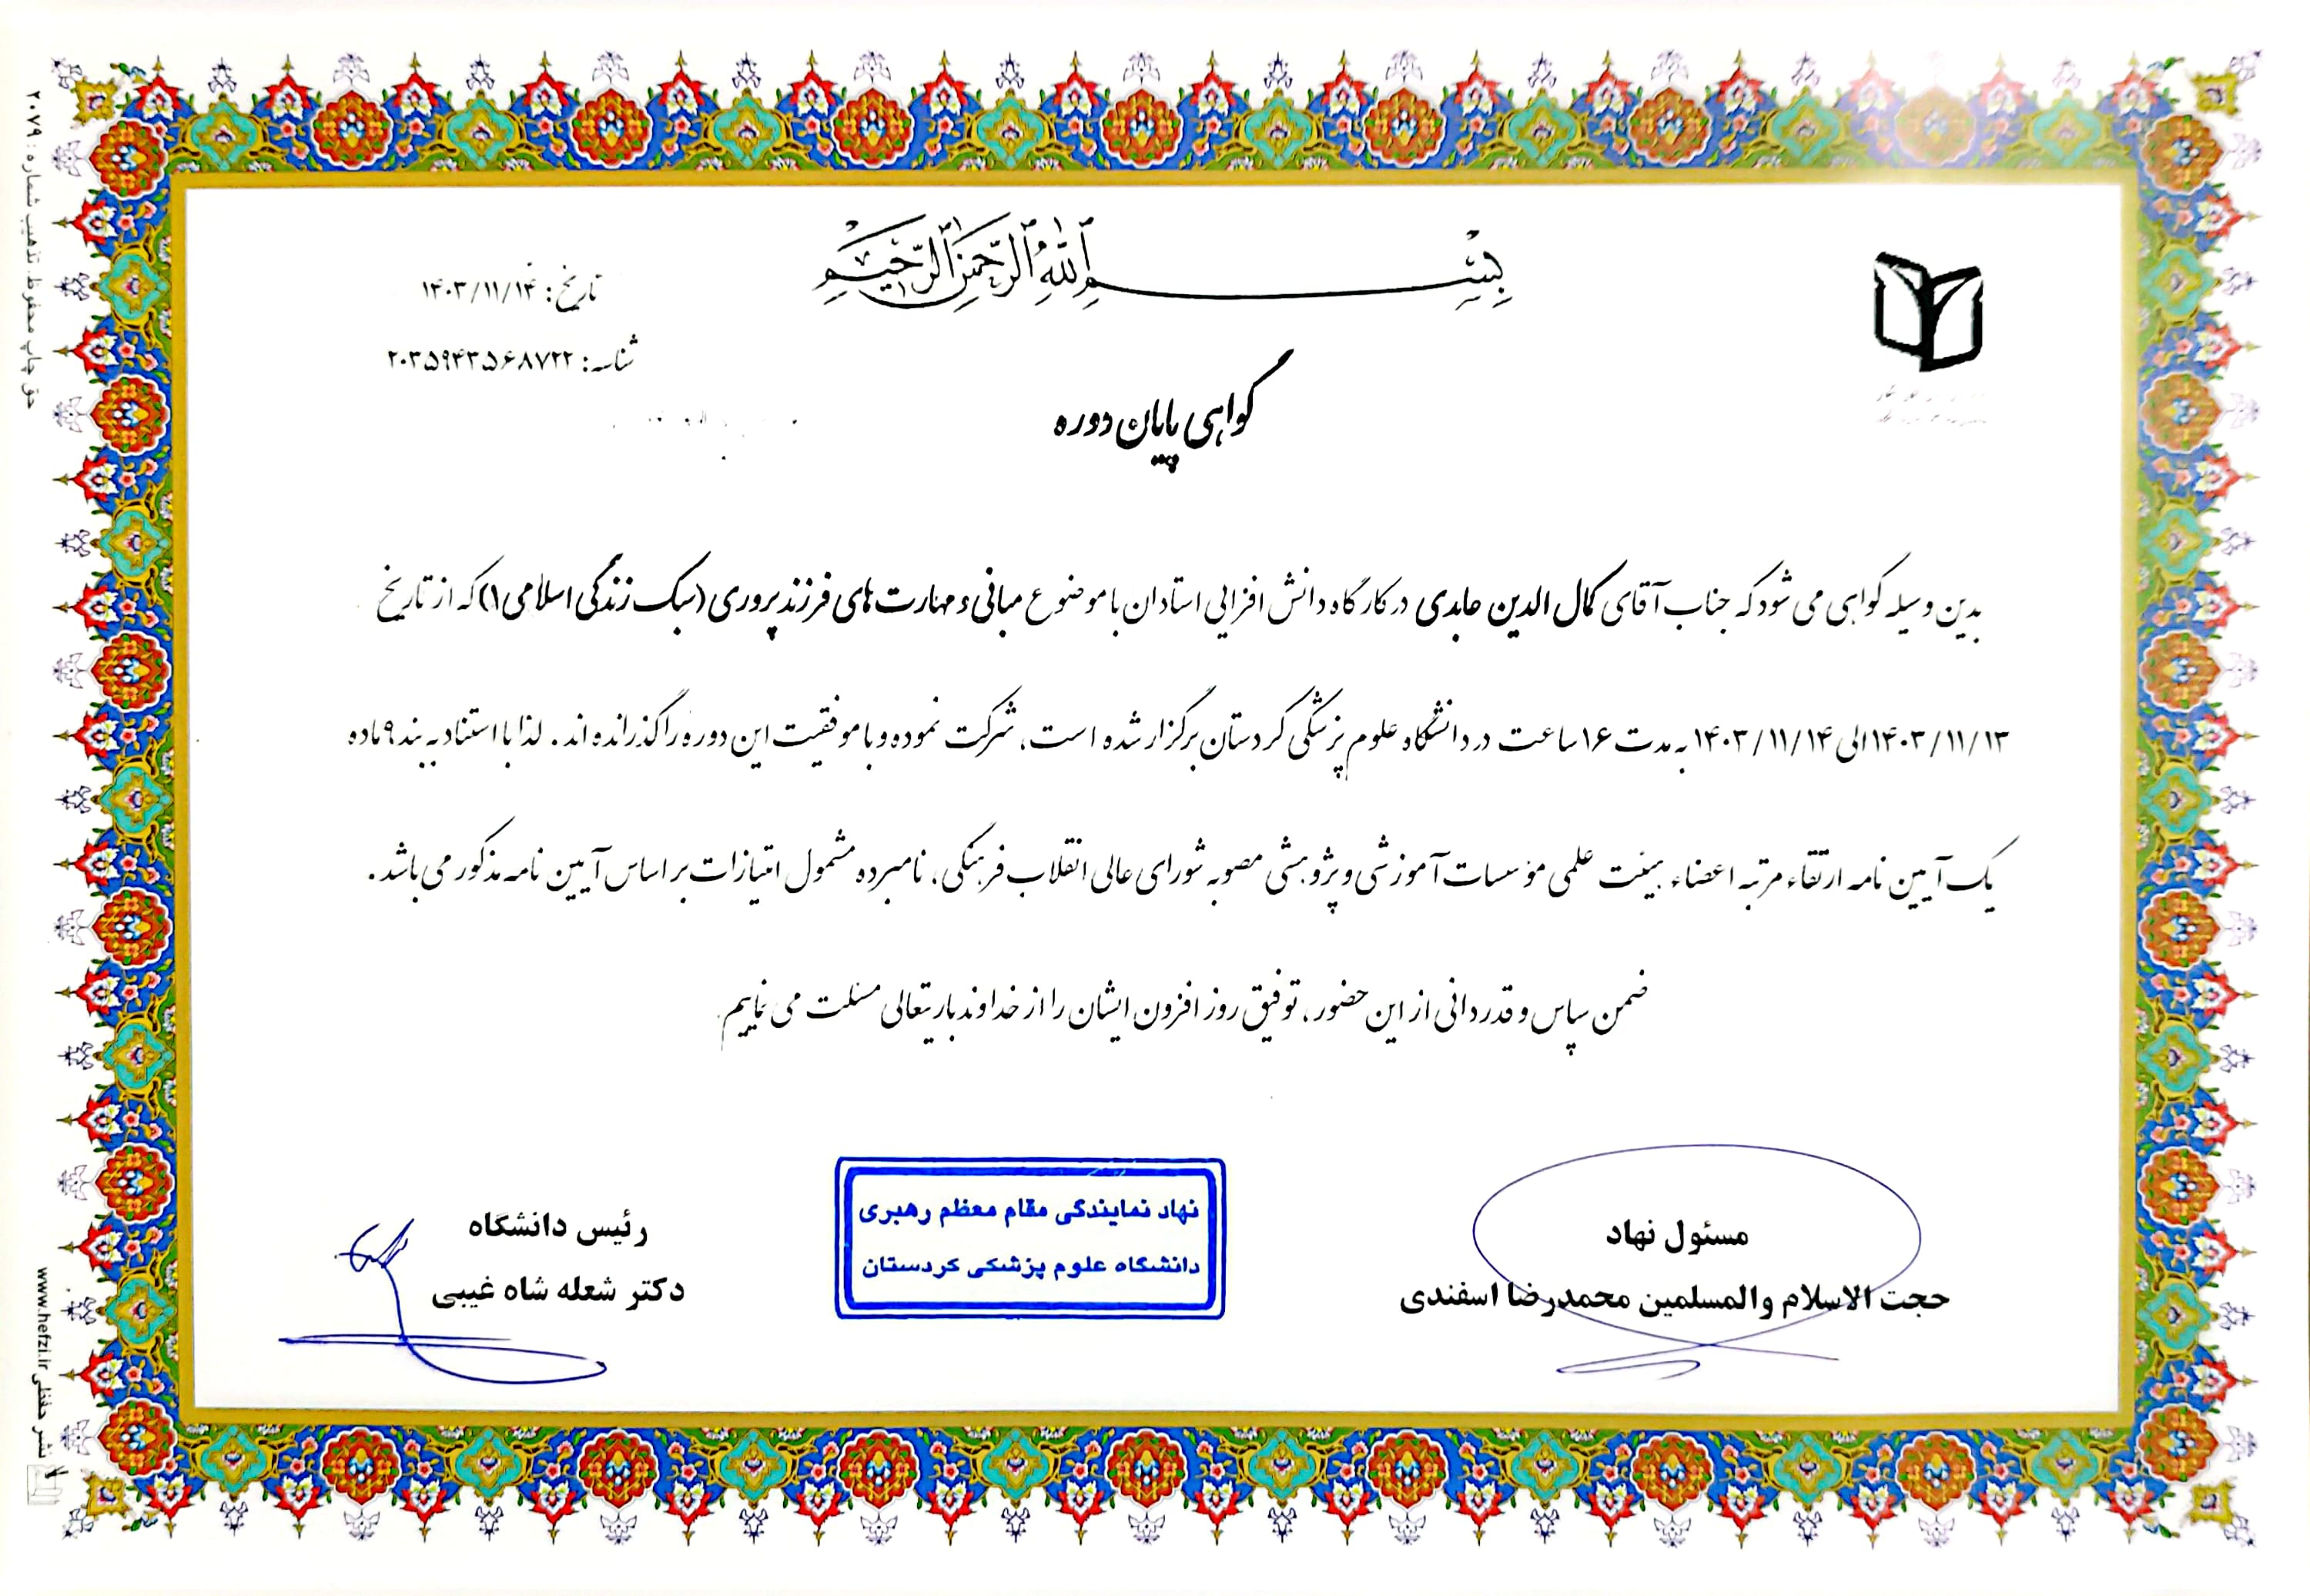 بِسْمِ ٱللَّهِ ٱلرَّحْمَٰنِ ٱلرَّحِيمِ
تاریخ: ۱۴۰۳/۱۱/۱۴
شناسه: ۲۰۳۵۹۴۳۵۶۸۷۲۲
گواهی پایان دوره
بدین وسیله گواهی می شود که جناب آقای کمال الدین عابدی در کارگاه دانش افزایی استادان با موضوع مبانی و مهارت های فرزند پروری (سبک زندگی اسلامی ۱) که از تاریخ
۱۴۰۳/۱۱/۱۳ الی ۱۴۰۳/۱۱/۱۴ به مدت ۱۶ ساعت در دانشگاه علوم پزشکی کردستان برگزار شده است، شرکت نموده و با موفقیت این دوره را گذرانده اند. لذا با استناد به بند ۹ ماده
یک آیین نامه ارتقاء مرتبه اعضاء هیئت علمی مؤسسات آموزشی و پژوهشی مصوبه شورای عالی انقلاب فرهنگی، نامبرده مشمول امتیازات بر اساس آیین نامه مذکور می باشد.
ضمن سپاس و قدردانی از این حضور، توفیق روز افزون ایشان را از خداوند باریتعالی مسئلت می نماییم
مسئول نهاد
حجت الاسلام والمسلمین محمدرضا اسفندی
نهاد نمایندگی مقام معظم رهبری
دانشگاه علوم پزشکی کردستان
رئیس دانشگاه
دکتر شعله شاه غیبی
حق چاپ محفوظ. تذهیب شماره: ۲۰۷۹
نشر حفظی www.hefzi.ir